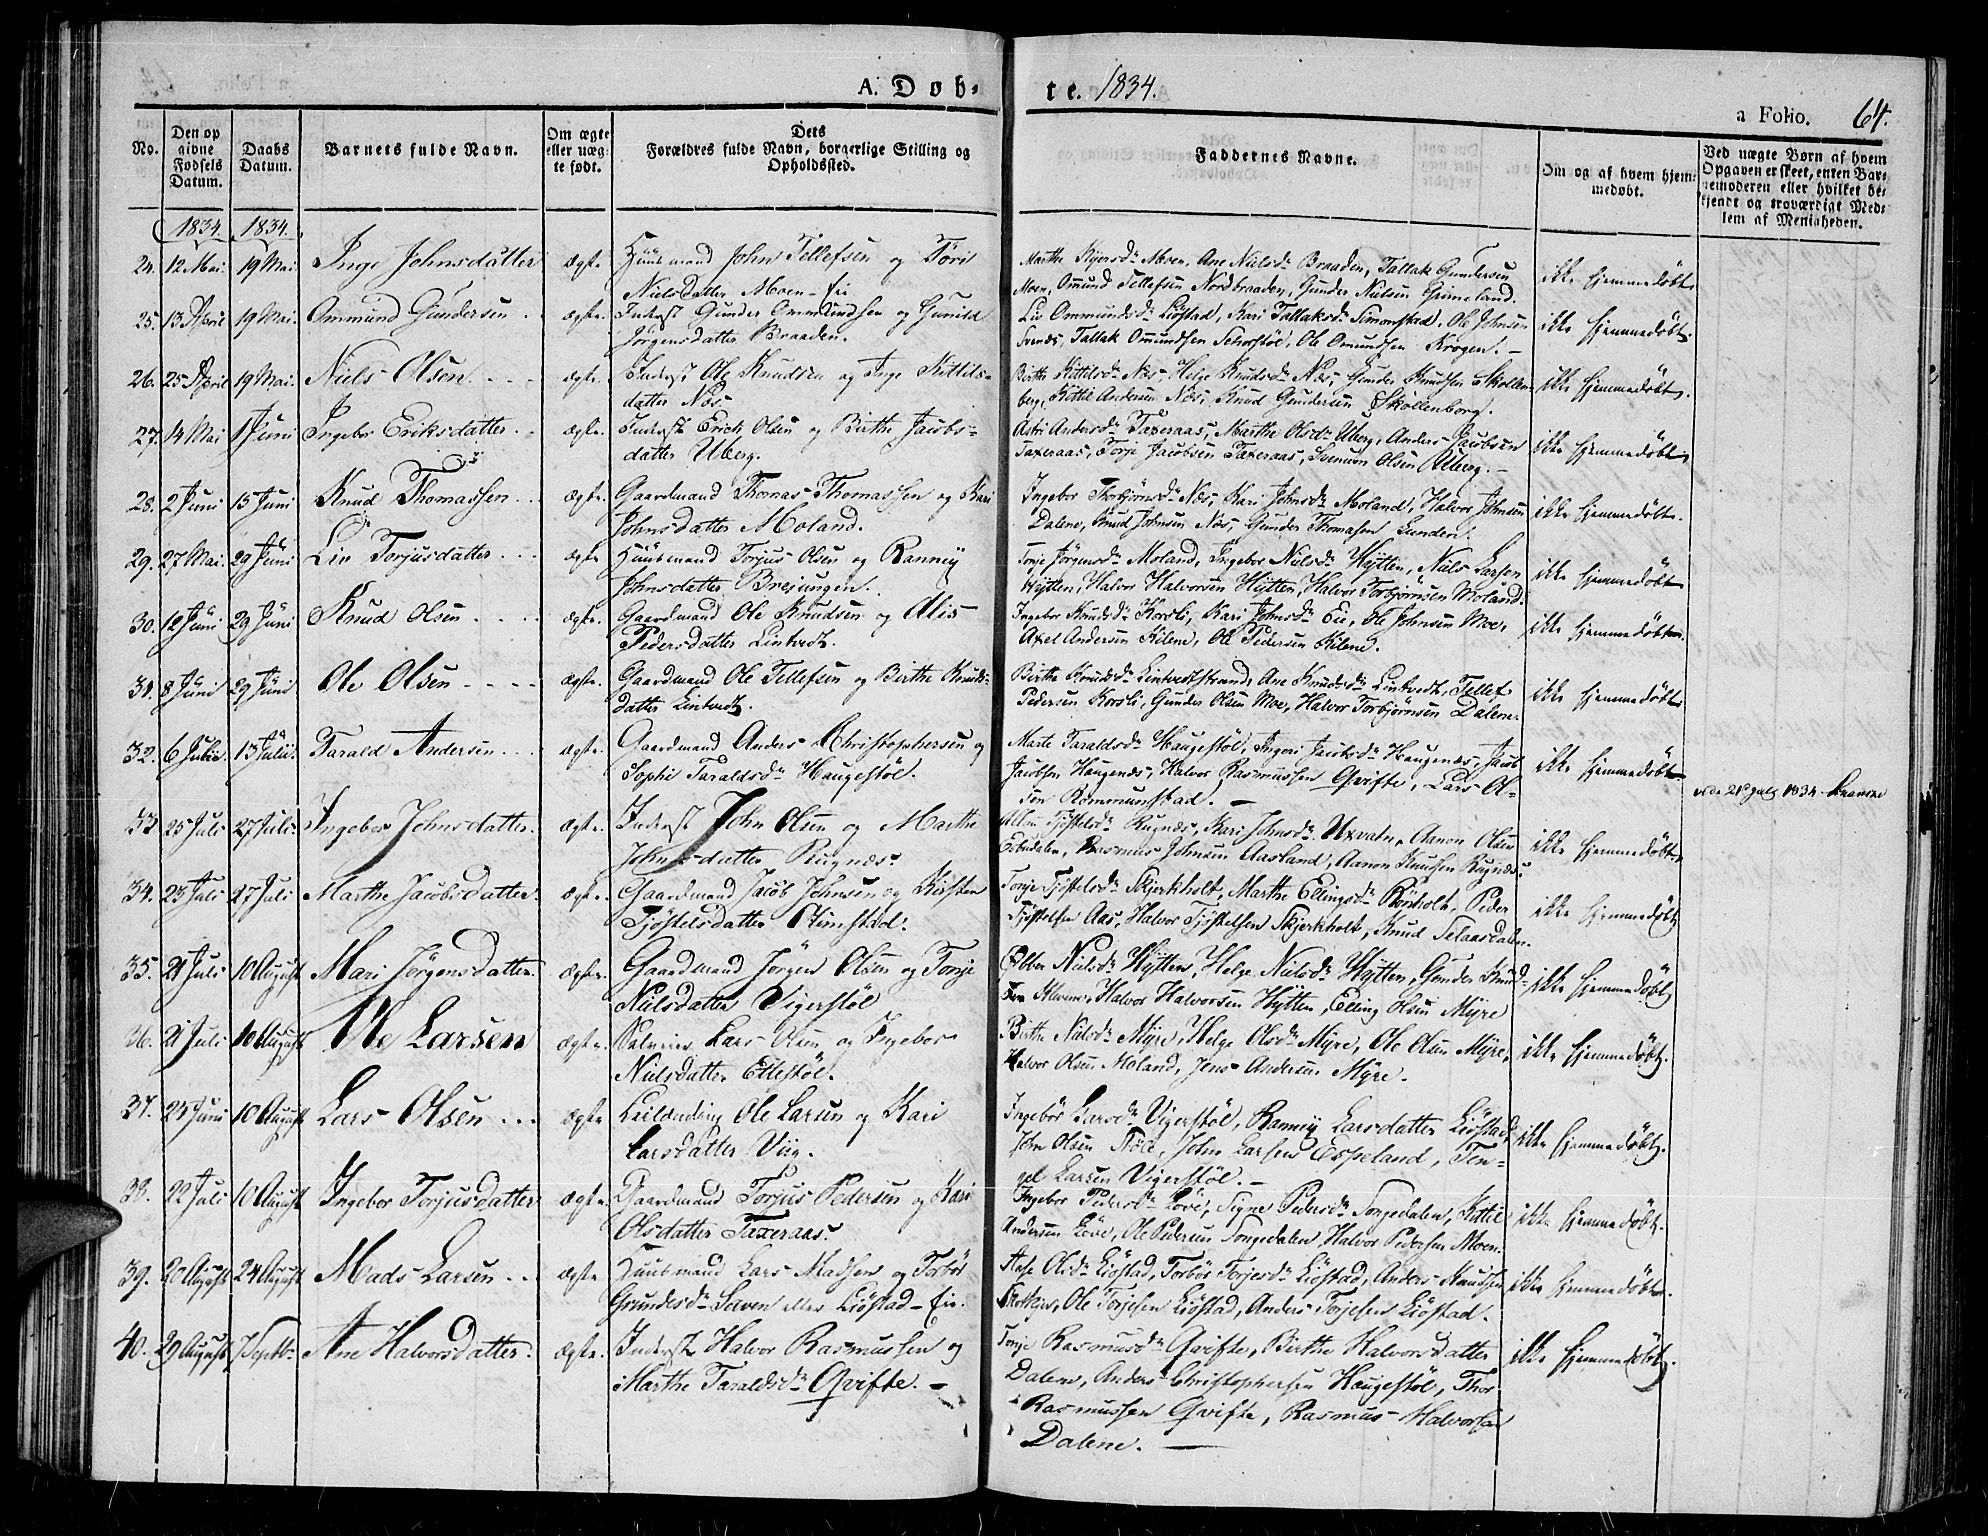 A. Døb-
te. 1834.
a Folio. 64.
No.
Den op
givne
Fødsels
Datum.
Daabs
Datum.
Barnets fulde Navn.
Om ægte
eller uæg-
te født.
Dets
Forældres fulde Navn, borgerlige Stilling og
Opholdssted.
Faddernes Navne.
Om og af hvem hjem-
medøbt.
Ved uægte Børn af hvem
Opgaven er skeet, enten Bar-
nemoderen eller hvilket be-
kjendt og troværdigt Med-
lem af Menigheden.
1834. 1834.
24. 12 Mai. 19 Mai. Inge Johnsdatter ægte. Huusmand John Tellefsen og Tøri
Nielsdatter Moen-Eie
Marthe Moen, Ane Nielsd. Braaden, Tallak Gundersen
Moen, Omund Tellefsen Nordbraaden, Gunder Nielsen Grimeland.
ikke hjemmedøbt.
25. 13 April 19 Mai. Ommund Gundersen ægte. Inderst Gunder Ommundsen og Gunild
Jörgensdatter Braaden.
Liv Ommundsd. Liøstad, Kari Tallaksd. Simonstad, Ole Johnsen
Svenes, Tallak Omundsen Ole Omundsen Krogen.
ikke hjemmedøbt.
26. 25 April 19 Mai. Niels Olsen ægte. Inderst Ole Knudsen og Inge Kittils-
datter Næs.
Birthe Kittelsd. Næs, Helge Knudsd. Næs, Gunder Knudsen Skollen-
berg, Kittil Andersen Næs, Knud Gundersen Skollenborg.
ikke hjemmedøbt.
27. 14 Mai 1 Juni Ingebor Eriksdatter ægte. Inderst Erich Olsen og Birthe Jacobs-
datter Uberg.
Astri Andersd. Taxeraas, Marthe Olsd. Uberg, Anders Jacobsen
Taxeraas, Torje Jacobsen Taxeraas, Svenum Olsen Uberg.
ikke hjemmedøbt.
28. 2 Juni 15 Juni Knud Thomassen ægte. Gaardmand Thomas Thomassen og Kari
Johnsdatter Moland.
Ingebor Thorbjørnsd. Næs, Kari Johnsd. Moland, Halvor Johnsen
Dalene, Knud Johnsen Næs, Gunder Thomasen Lunden.
ikke hjemmedøbt.
29. 27 Mai. 29 Juni Liv Torjusdatter ægte. Huusmand Torjus Olsen og Ranney
Johnsdatter Brejungen.
Torje Jörgensd. Moland, Ingebor Nielsd. Hytten, Niels Larsen
Hytten, Halvor Halvorsen Hytten, Halvor Torbjørnsen Moland.
ikke hjemmedøbt
30. 12 Juni 29 Juni Knud Olsen ægte. Gaardmand Ole Knudsen og Alis
Pedersdatter Lintvedt.
Ingebor Knudsd. Korsli, Kari Johnsd. Eie, Ole Johnsen Moe,
Axel Andersen Kilene, Ole Pedersen Kilene.
ikke hjemmedøbt.
31. 8 Juni 29 Juni Ole Olsen ægte. Gaardmand Ole Tellefsen og Birthe Knuds-
datter Lintvedt.
Birthe Knudsd. Lintvedtstrand, Ane Knudsd. Lintvedt, Tellef
Pedersen Korsli, Gunder Olsen Moe, Halvor Torbjørnsen Dalene.
ikke hjemmedøbt
32. 6 Julii. 13 Julii. Tarald Andersen ægte. Gaardmand Anders Christophersen og
Sophi Taraldsd. Haugestöl.
Marte Taraldsd. Haugestöl, Ingeri Jacobsd. Haugenæs, Jacob
Jacobsen Haugenæs, Halvor Rasmussen Qvifte, Lars Ol-
sen Rommunstad.
ikke hjemmedøbt.
21de July 1834.
33. 25 Juli 27 Juli. Ingebor Johnsdatter. ægte. Inderst John Olsen og Marthe
Johnsdatter Rugnæs.
Tjøstelsd. Rugnæs, Kari Johnsd. Uxvatn, Aanon Olsen
Rasmus Johnsen Aasland, Aanon Knudsen Rugnæs.
ikke hjemmedøbt.
34. 23 Juli 27 Juli Marthe Jacobsdatter. ægte. Gaardmand Jacob Johnsen og Kirsten
Tjöstelsdatter Rimstad.
Torje Tjöstelsd. Skjerkholt, Marthe Ellingsd. Rönholt, Peder
Tjöstelsen Aas, Halvor Tjöstelsen Skjerkholt, Knud Selaasdalen.
ikke hjemmedøbt
35. 21 Juli 10 August Mari Jörgensdatter. ægte. Gaardmand Jörgen Olsen og Torje
Nielsdatter Vigerstöl
Ebber Nielsd. Hytten, Helge Nielsd. Hytten, Gunder Knud-
sen Halvor Halvorsen Hytten, Elling Olsen Myre
ikke hjemmedøbt
36. 21 Juli 10 August Ole Larsen ægte. Lars Olsen og Ingebor
Nielsdatter Ettestöl.
Birthe Nielsd. Myre, Helge Olsd. Myre, Ole Olsen Myre,
Halvor Olsen Moland, Jens Andersen Myre.
ikke hjemmedøbt.
37. 25 Juni 10 August Lars Olsen ægte Leilænding Ole Larsen og Kari
Larsdatter Viig.
Ingebör Larsd. Vigerstöl, Ranney Larsdatter Liöstad,
John Olsen John Larsen Espeland, Ten-
gel Larsen Vigerstöl.
ikke hjemmedøbt.
38. 22 Juli 10 August Ingebor Torjusdatter ægte. Gaardmand Torjus Pedersen og Kari
Olsdatter Taxeraas.
Ingebor Pedersd. Löve, Signe Pedersd. Songedalen, Kittil
Andersen Löve, Ole Pedersen Songedalen, Halvor Pedersen Moen.
ikke hjemmedøbt.
39. 20 August 24 August Mads Larsen ægte. Huusmand Lars Madsen og Torbör
Grundesd. Saven eller Liöstad-Eie.
Aase Olsd. Liöstad, Torbör Torjesd. Liöstad, Anders Knudsen
Ole Torjesen Liöstad, Anders Torjesen Liöstad.
ikke hjemmedøbt.
40. 29 August 7 Septb. Ane Halvorsdatter. ægte. Inderst Halvor Rasmussen og
Marthe Taraldsd. Qvifte.
Torje Rasmusd. Qvifte, Birthe Halvorsdatter
Dalene, Anders Christophersen Haugestöl, Thor
Rasmussen Qvifte, Rasmus Halvorsen
Dalene.
ikke hjemmedøbt.